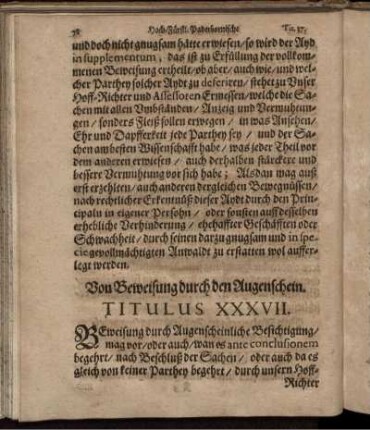 78 Hoch-Fürstl. Paderbornische Tit. 37.
und doch nicht gnugsam hätte erwiesen / so wird der Ayd
in supplementum, das ist zu Erfüllung der vollkom-
menen Beweisung ertheilt / ob aber / auch wie / und wel-
cher Parthey solcher Aydt zu deferiren / stehet zu Unser
Hoff-Richter und Assessoren Ermessen / welche die Sa-
chen mit allen Vmbständen / Anzeig und Vermuhtun-
gen / sonders Fleiß sollen erwegen / in was Ansehen /
Ehr und Dapfferkeit jede Parthey sey / und der Sa-
chen am besten Wissenschafft habe / was jeder Theil vor
dem anderen erwiesen / auch derhalben stärckere und
bessere Vermuhtung vor sich habe; Alsdan mag auß
erst erzehlten / auch anderen dergleichen Bewegnüssen /
nach rechtlicher Erkentnüß dieser Aydt durch den Prin-
cipaln in eigener Persohn / oder sonsten auff desselben
erhebliche Verhinderung / ehehaffter Geschäfften oder
Schwachheit / durch seinen darzu gnugsam und in spe-
cie gevollmächtigten Anwaldt zu erstatten wol auffer-
legt werden.
Von Beweisung durch den Augenschein.
TITULUS XXXVII.
BEweisung durch Augenscheinliche Besichtigung /
mag vor / oder auch / wan es ante conclusionem
begehrt / nach Beschluß der Sachen / oder auch da es
gleich von keiner Parthey begehrt / durch unsern Hoff-
Richter